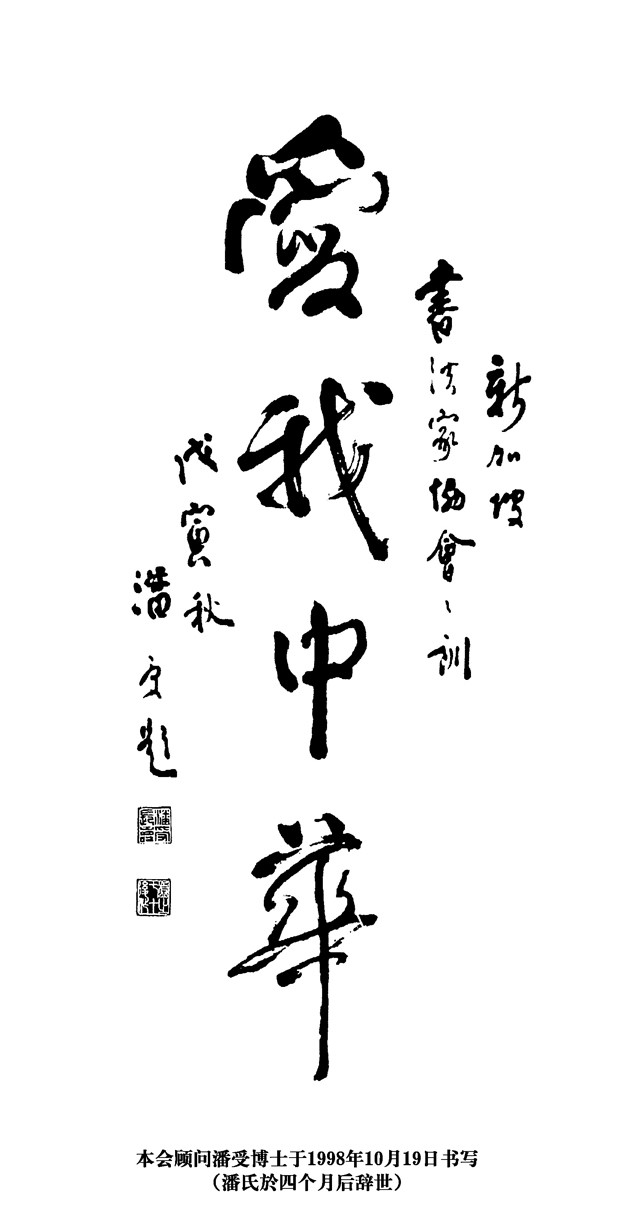 新加坡
書法家協會〻訓
愛我中華
戊寅秋
潘受題
本会顾问潘受博士于1998年10月19日书写
（潘氏於四个月后辞世）